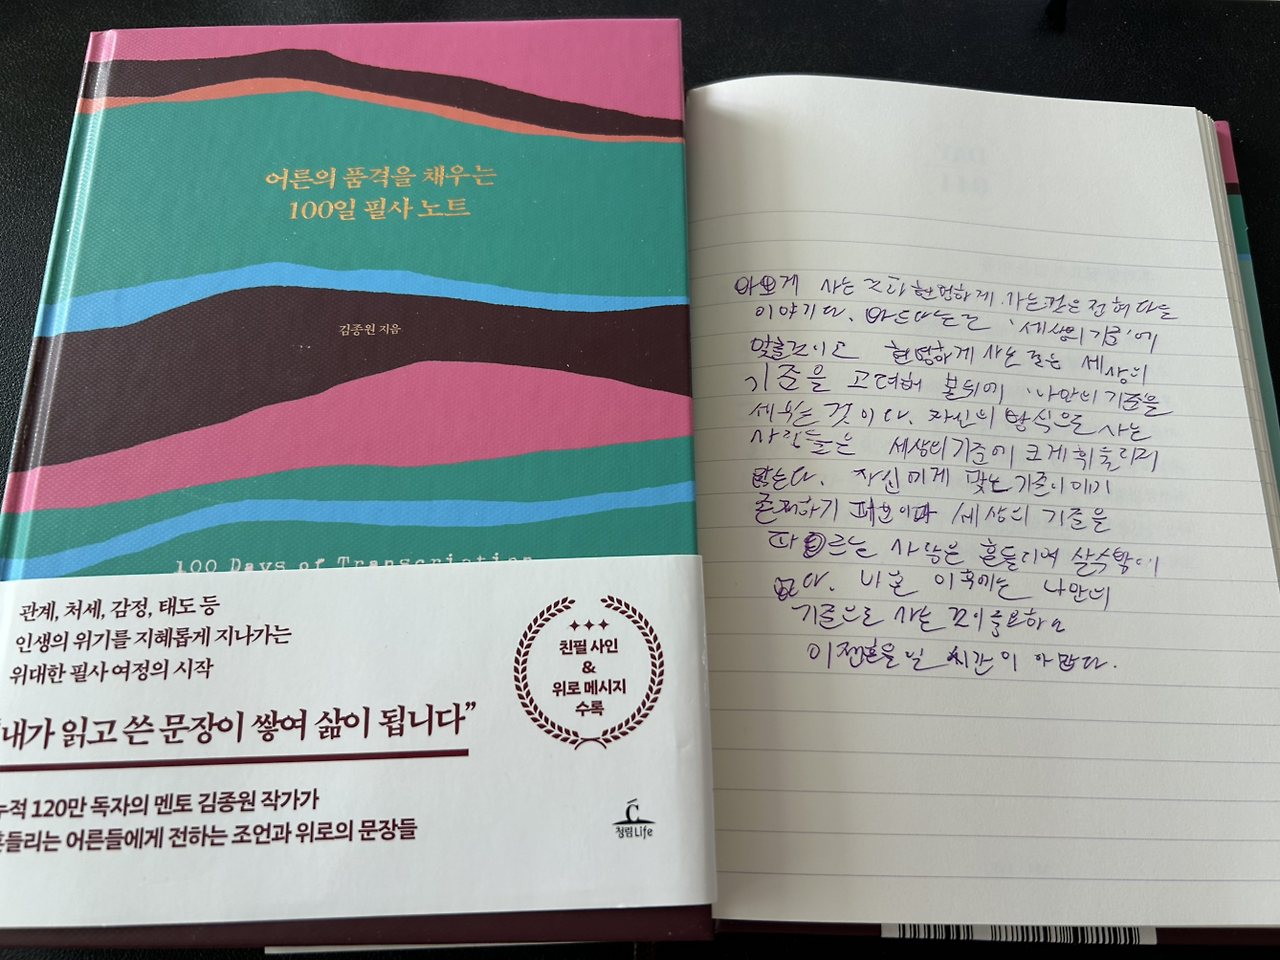 어른의 품격을 채우는
100일 필사 노트
김종원 지음
100 Days of Transcription
관계, 처세, 감정, 태도 등
인생의 위기를 지혜롭게 지나가는
위대한 필사 여정의 시작
"내가 읽고 쓴 문장이 쌓여 삶이 됩니다"
누적 120만 독자의 멘토 김종원 작가가
흔들리는 어른들에게 전하는 조언과 위로의 문장들
친필 사인
&
위로 메시지
수록
청림Life
사는 것과 현명하게 사는 것은 전혀 다른
이야기다. '세상의 기준'에
맞춘 것이고 현명하게 사는 것은 세상의
기준을 고려해 본 뒤에 '나만의 기준을
세우는 것이다. 자신의 방식으로 사는
사람들은 세상의 기준에 크게 휘둘리지
않는다. 자신에게 맞는 기준이 이미
존재하기 때문이다 세상의 기준을
따르는 사람은 흔들리며 살 수밖에
없다. 이후에는 나만의
기준으로 사는 것이 중요하고
시간이 아깝다.